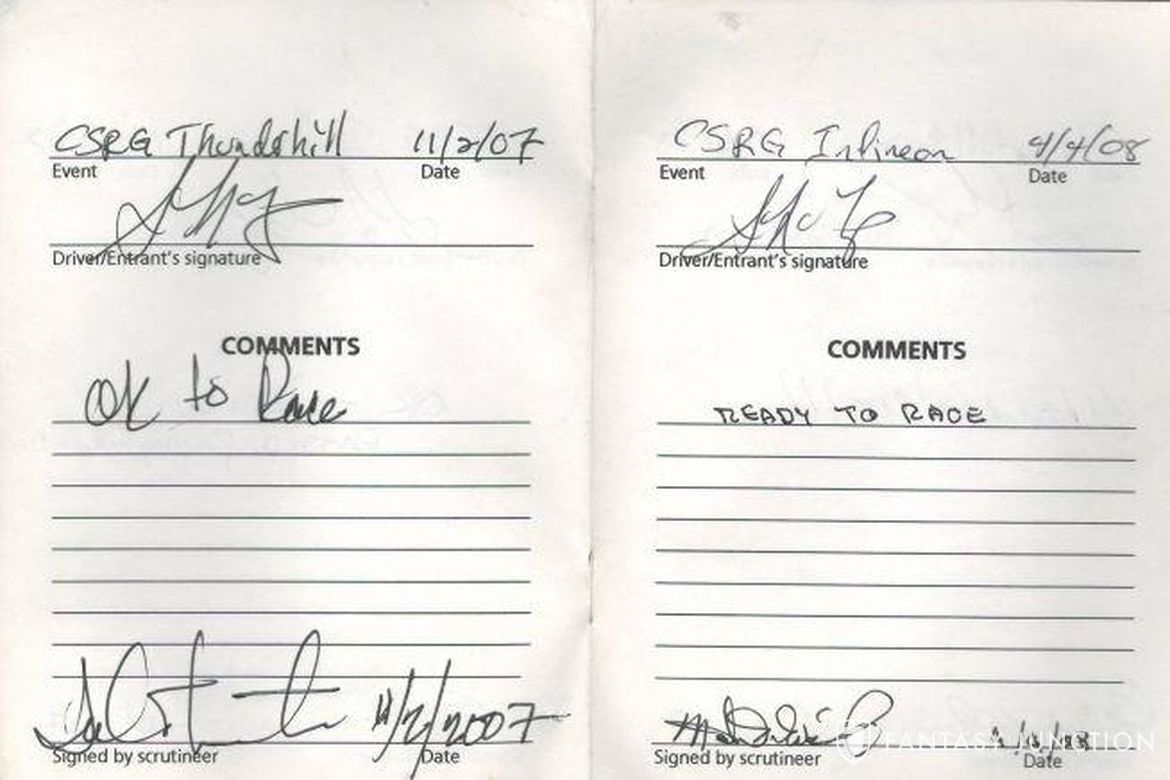 CSRG Thunderhill 11/2/07
Event Date
Driver/Entrant's signature
COMMENTS
OK to Race
11/2/2007
Signed by scrutineer Date
CSRG Infineon 4/4/08
Event Date
Driver/Entrant's signature
COMMENTS
READY TO RACE
Signed by scrutineer Date
FANTASY JUNCTION